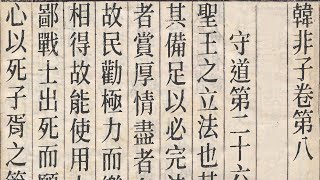 韓非子卷第八
守道第二十六
聖王之立法也其
其備足以必完法
者賞厚情盡者
故民勸極力而樂
相得故能使用力
鄙戰士出死而願
心以死子胥之節